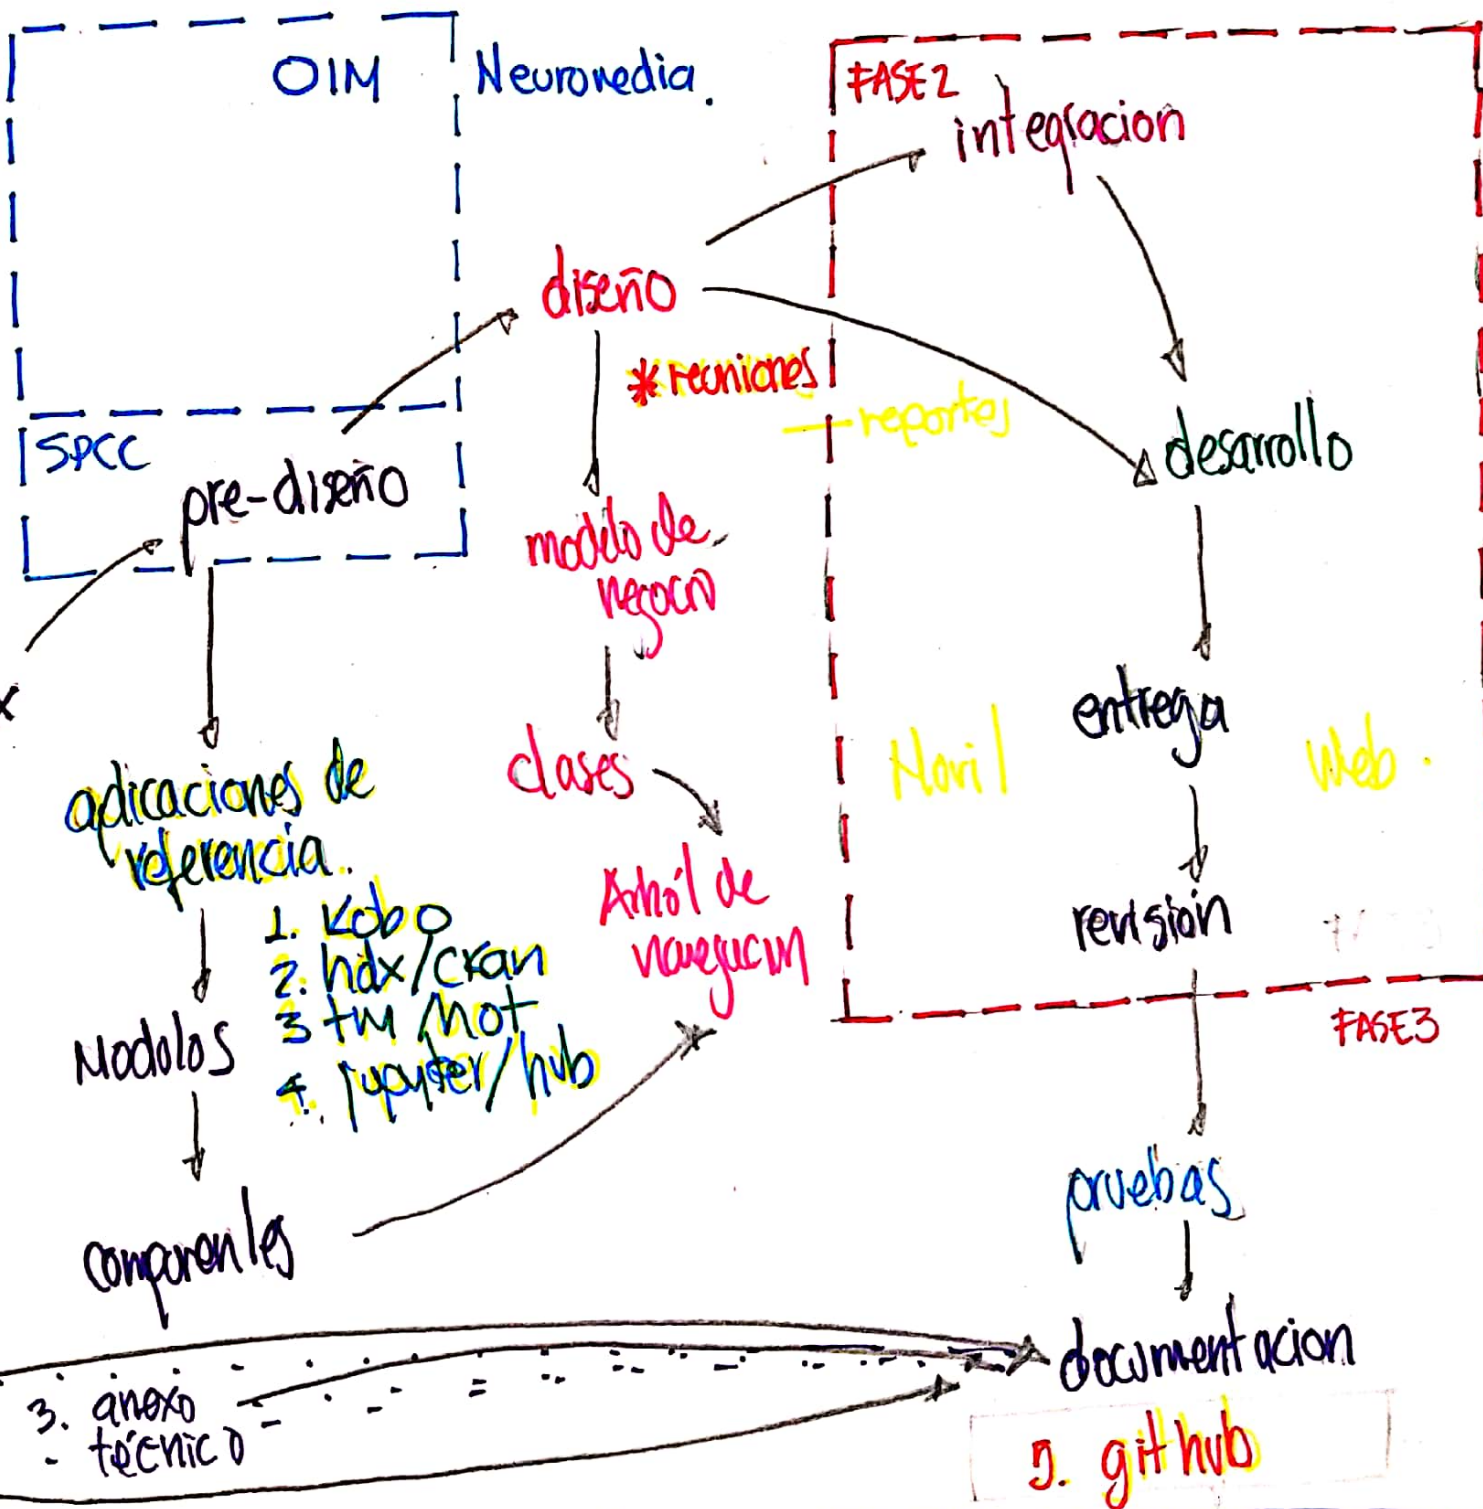 OIM
Neuromedia.
FASE2
integracion
diseño
* reuniones
- reportes
SPCC
pre-diseño
desarrollo
modelo de
negocio
entrega
Movil
Web.
clases
aplicaciones de
referencia.
1. Kobo
2. hdx/ckan
3 tm/hot
4. jupyter/hub
Arból de
navegacion
revisión
Modolos
FASE3
pruebas
componentes
documentacion
3. anexo
técnico
5. github